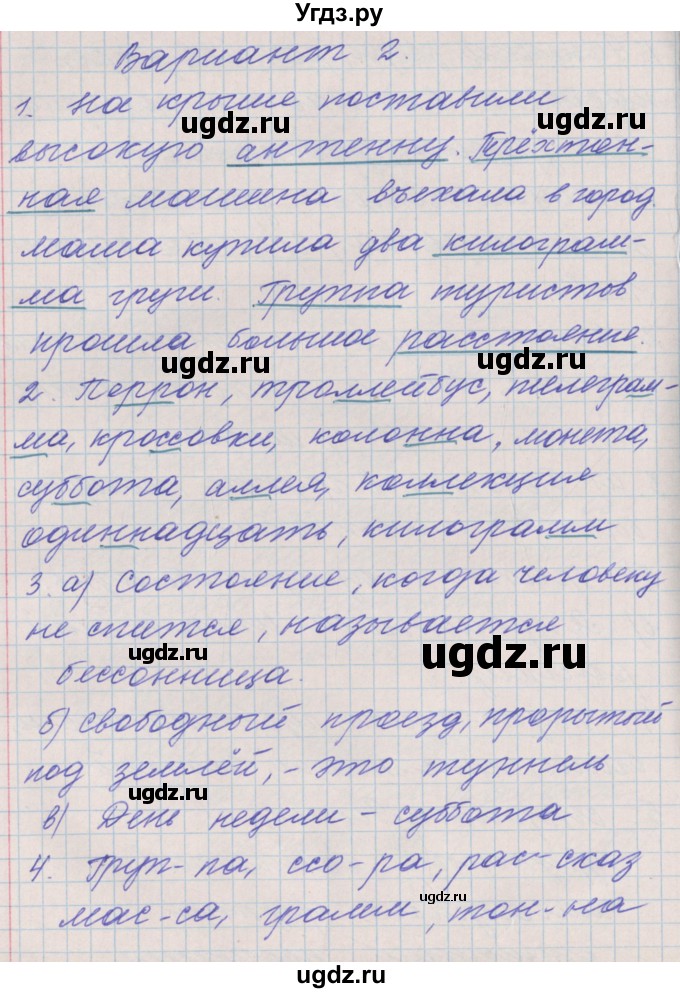 Угдз.ру
Вариант 2.
1. На крыше поставили
ugdz.ru ugdz.ru
высокую антенну. Трёхтон-
ная машина въехала в город.
мама купила два килограм-
ма груш. Группа туристов
прошла большое расстояние.
ugdz.ru ugdz.ru
2. Перрон, троллейбус, телеграм-
ма, кроссовки, колонна, монета,
суббота, аллея, коллекция
одиннадцать, килограмм
3. а) Состояние, когда человеку
не спится, называется
ugdz.ru ugdz.ru
бессонница.
б) свободный проезд, прорытый
под землёй, - это туннель
ugdz.ru
в) День недели - суббота
4. Груп-па, ссо-ра, рас-сказ
ugdz.ru
мас-са, грамм, тон-на
ugdz.ru